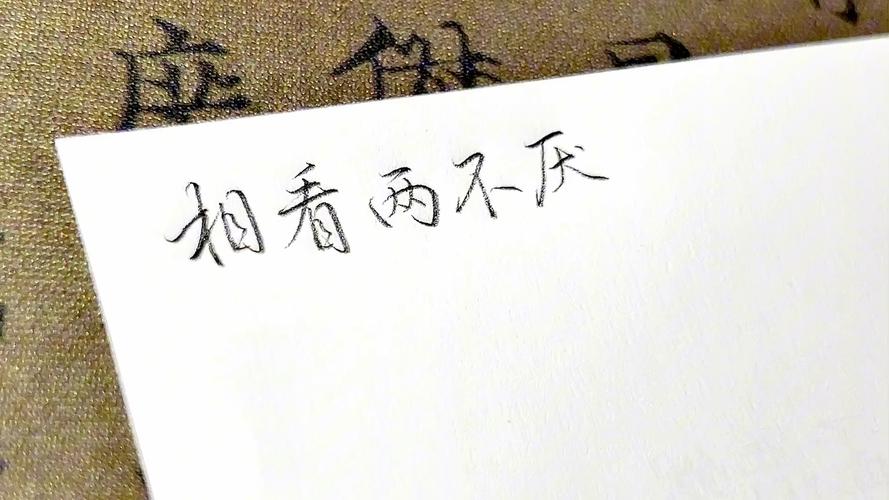 座
相看两不厌